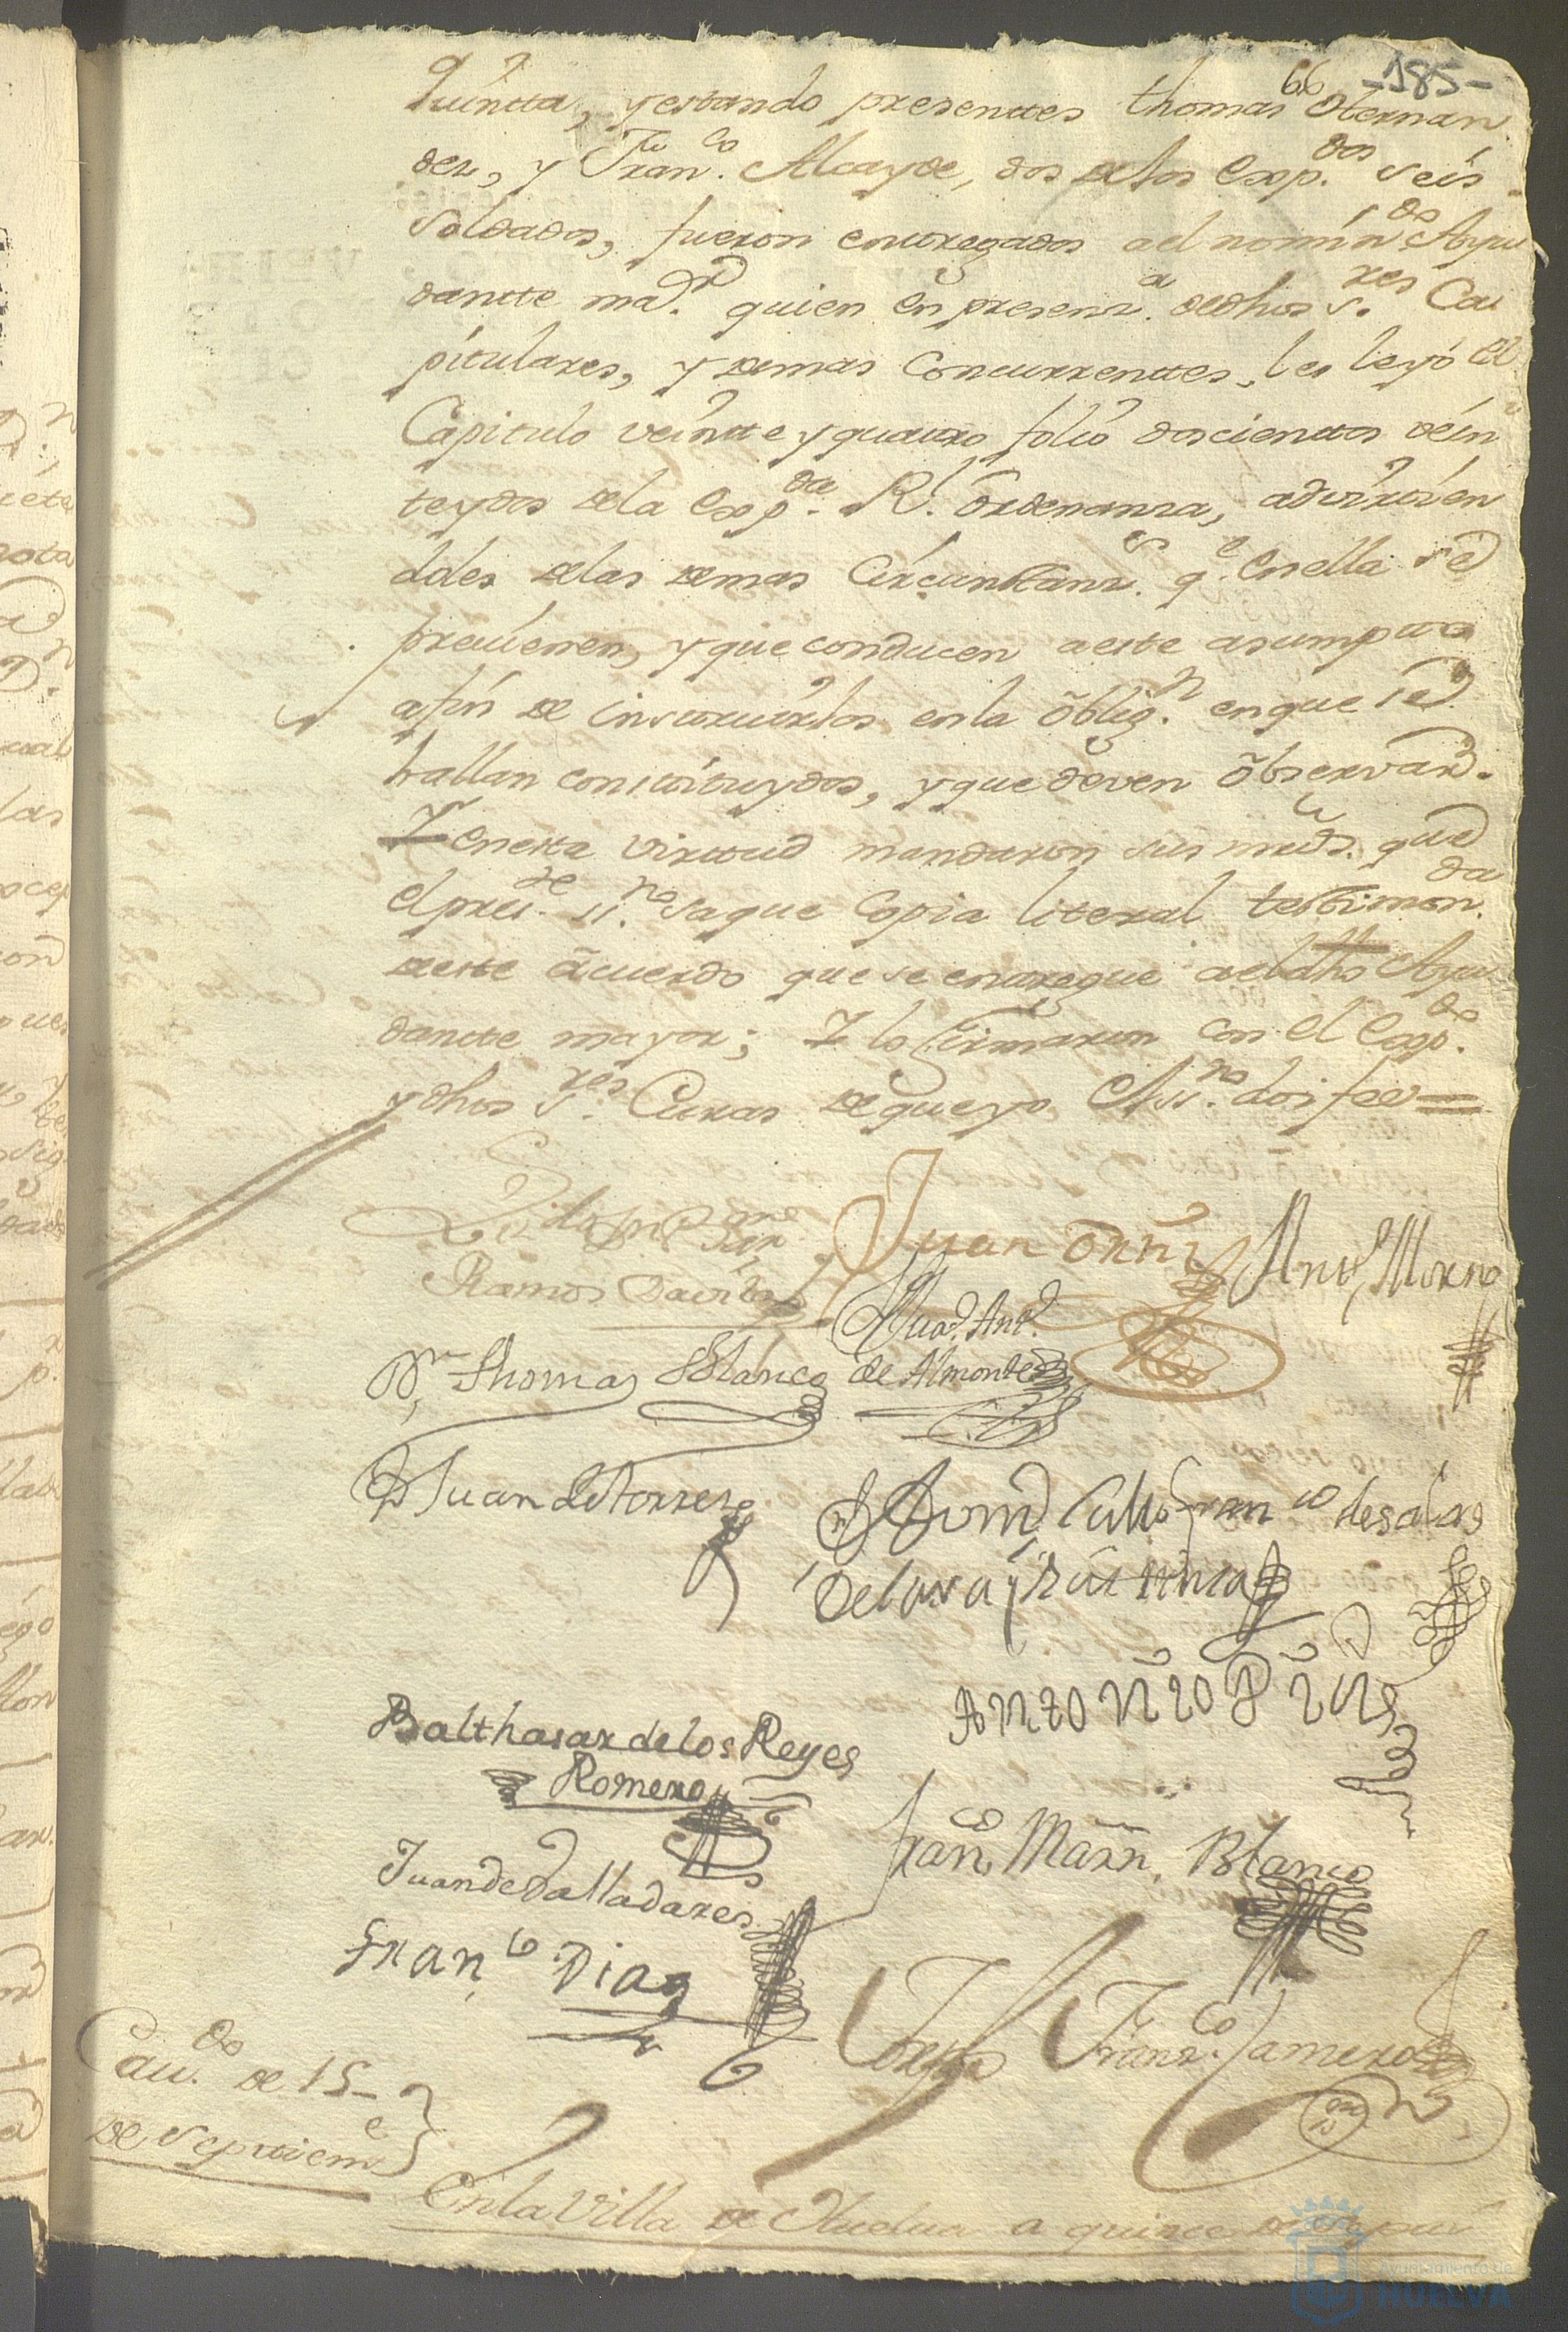 66 -185-
Quintta, y estando presenttes thomas Hernan
dez, y Fran.co Alcayde, dos de los Exp.dos seis
soldados, fueron enttregados a el nomin.do Ayu
dantte ma.r quien en presenz.a de dhos s.res Ca
pitulares, y demas Concurrenttes, les leyó el
Capitulo veintte y quattro folio doscienttos vein
te y dos de la Exp.da R.l ordenanza, advirtien
doles de las demas Circunstanz.s q.e en ella se
previenen, y que conducen a este asumptto
a fin de instruirlos en la oblig.n en que se
hallan constituydos, y que deven observar.
Y en esta virttud mandaron sus mrds. que
el pres.te ss.no saque Copia literal testimon.da
de este acuerdo que se entregue a el dho Ayu
dantte mayor; Y lo firmaron con el Exp.do
y dhos s.res Curas de que yo el ss.no doi fee =
Ramos Davila
Juan
Ant.o Moreno
Juan Ant.o
de Almonte
D.n Thomas Blanco
D Juan de Torres
Fran.co de salas
de Lara y
Antonio
Balthasar de los Reyes
Romero
Fran.co Marn. Blanco
Juan de Valladares
Fran.co Diaz
Joseph Franz.co Jamero
Cav.do de 15
de Septtiem.e
En la Villa de Huelva a quince de
Ayuntamiento de
HUELVA